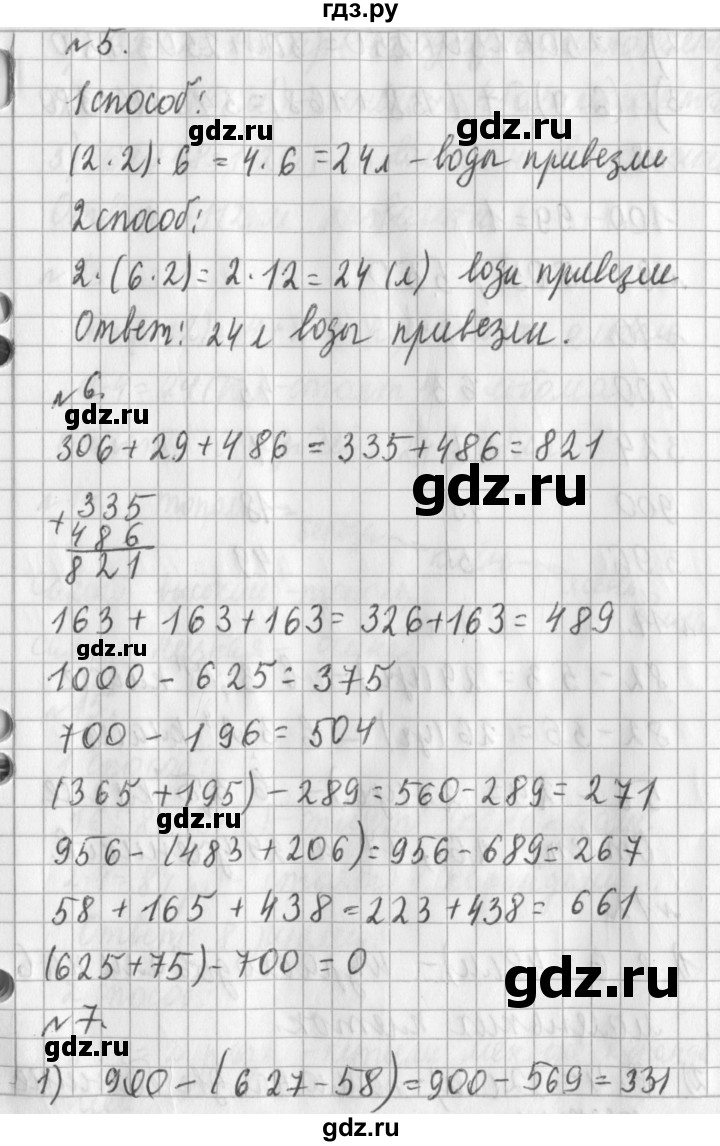 гдз.ру
№5.
1 способ:
(2·2)·6 = 4·6 = 24 л – воды привезли
2 способ:
2·(6·2) = 2·12 = 24 (л) воды привезли.
Ответ: 24 л воды привезли.
№6.
306 + 29 + 486 = 335 + 486 = 821
+ 335
486
821
163 + 163 + 163 = 326 + 163 = 489
1000 - 625 = 375
700 - 196 = 504
(365 + 195) - 289 = 560 - 289 = 271
956 - (483 + 206) = 956 - 689 = 267
58 + 165 + 438 = 223 + 438 = 661
(625 + 75) - 700 = 0
№7.
1) 900 - (627 - 58) = 900 - 569 = 331
gdz.ru
gdz.ru
gdz.ru
gdz.ru
gdz.ru
gdz.ru
gdz.ru
gdz.ru